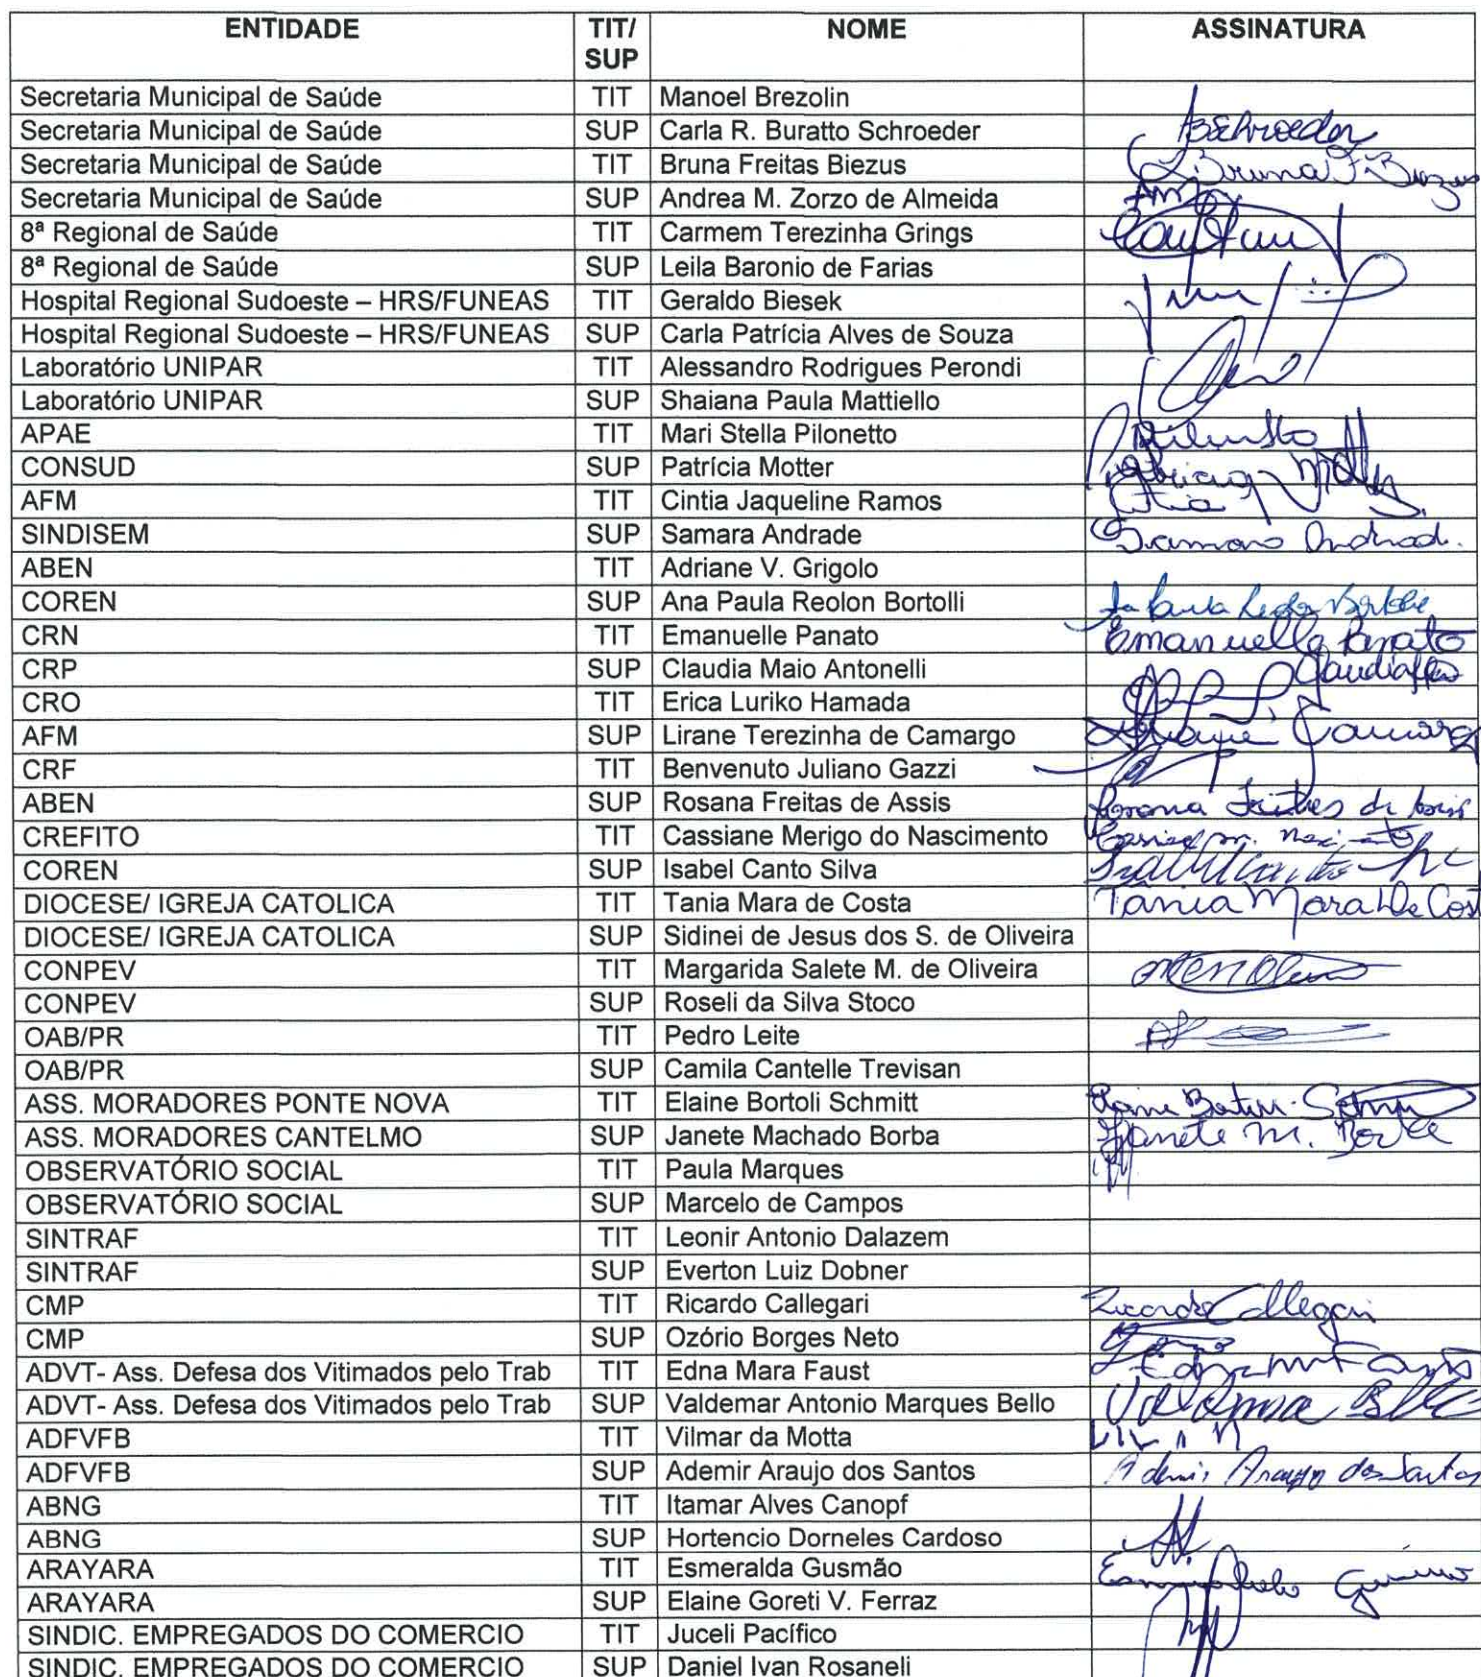 ENTIDADE TIT/ SUP NOME ASSINATURA
Secretaria Municipal de Saúde TIT Manoel Brezolin
Secretaria Municipal de Saúde SUP Carla R. Buratto Schroeder BSchroeder
Secretaria Municipal de Saúde TIT Bruna Freitas Biezus Bruna F. Biezus
Secretaria Municipal de Saúde SUP Andrea M. Zorzo de Almeida
8ª Regional de Saúde TIT Carmem Terezinha Grings
8ª Regional de Saúde SUP Leila Baronio de Farias
Hospital Regional Sudoeste – HRS/FUNEAS TIT Geraldo Biesek
Hospital Regional Sudoeste – HRS/FUNEAS SUP Carla Patrícia Alves de Souza
Laboratório UNIPAR TIT Alessandro Rodrigues Perondi
Laboratório UNIPAR SUP Shaiana Paula Mattiello
APAE TIT Mari Stella Pilonetto
CONSUD SUP Patrícia Motter
AFM TIT Cintia Jaqueline Ramos
SINDISEM SUP Samara Andrade Samara Andrad.
ABEN TIT Adriane V. Grigolo
COREN SUP Ana Paula Reolon Bortolli
CRN TIT Emanuelle Panato Emanuelle Panato
CRP SUP Claudia Maio Antonelli
CRO TIT Erica Luriko Hamada
AFM SUP Lirane Terezinha de Camargo
CRF TIT Benvenuto Juliano Gazzi
ABEN SUP Rosana Freitas de Assis Rosana Freitas de Assis
CREFITO TIT Cassiane Merigo do Nascimento
COREN SUP Isabel Canto Silva
DIOCESE/ IGREJA CATOLICA TIT Tania Mara de Costa Tania Mara De Cost
DIOCESE/ IGREJA CATOLICA SUP Sidinei de Jesus dos S. de Oliveira
CONPEV TIT Margarida Salete M. de Oliveira
CONPEV SUP Roseli da Silva Stoco
OAB/PR TIT Pedro Leite
OAB/PR SUP Camila Cantelle Trevisan
ASS. MORADORES PONTE NOVA TIT Elaine Bortoli Schmitt
ASS. MORADORES CANTELMO SUP Janete Machado Borba Janete M. Borba
OBSERVATÓRIO SOCIAL TIT Paula Marques
OBSERVATÓRIO SOCIAL SUP Marcelo de Campos
SINTRAF TIT Leonir Antonio Dalazem
SINTRAF SUP Everton Luiz Dobner
CMP TIT Ricardo Callegari Ricardo Callegari
CMP SUP Ozório Borges Neto
ADVT- Ass. Defesa dos Vitimados pelo Trab TIT Edna Mara Faust
ADVT- Ass. Defesa dos Vitimados pelo Trab SUP Valdemar Antonio Marques Bello
ADFVFB TIT Vilmar da Motta
ADFVFB SUP Ademir Araujo dos Santos Ademir Araujo dos Santos
ABNG TIT Itamar Alves Canopf
ABNG SUP Hortencio Dorneles Cardoso
ARAYARA TIT Esmeralda Gusmão
ARAYARA SUP Elaine Goreti V. Ferraz
SINDIC. EMPREGADOS DO COMERCIO TIT Juceli Pacífico
SINDIC. EMPREGADOS DO COMERCIO SUP Daniel Ivan Rosaneli